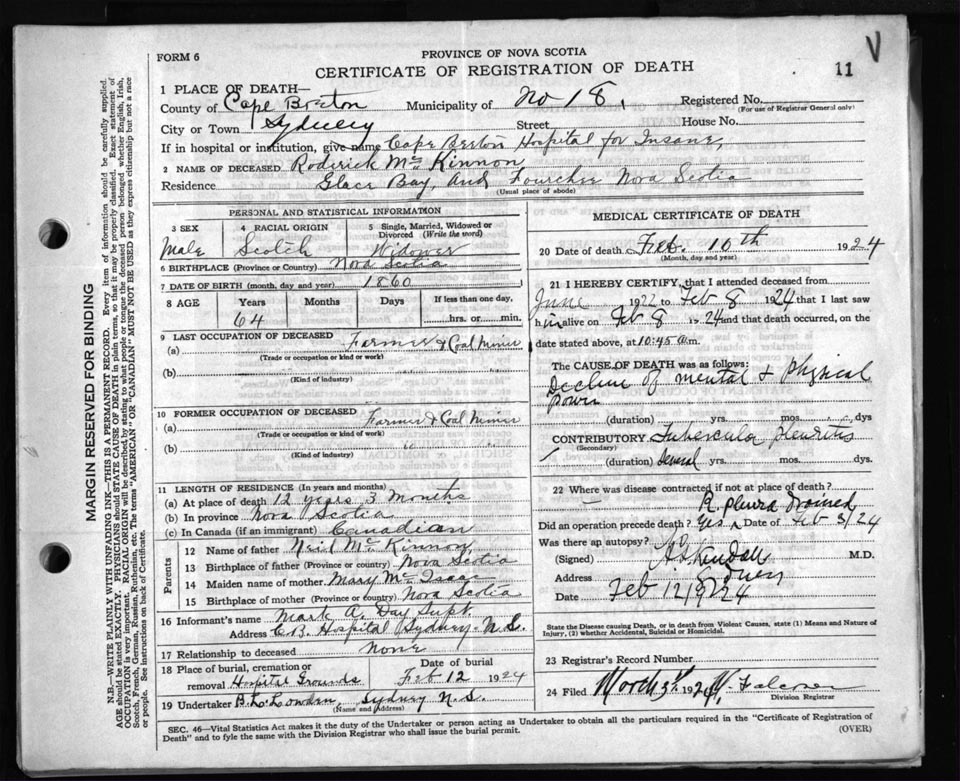 V
PROVINCE OF NOVA SCOTIA
FORM 6
CERTIFICATE OF REGISTRATION OF DEATH
11
1 PLACE OF DEATH—
County of Cape Breton Municipality of No 18, Registered No.
(For use of Registrar General only)
City or Town Sydney Street House No.
If in hospital or institution, give name Cape Breton Hospital for Insane,
2 NAME OF DECEASED Roderick Mc Kinnon
Residence Glace Bay, And Fourchie Nova Scotia
(Usual place of abode)
PERSONAL AND STATISTICAL INFORMATION
3 SEX 4 RACIAL ORIGIN 5 Single, Married, Widowed or Divorced (Write the word)
Male Scotch Widower
6 BIRTHPLACE (Province or Country) Nova Scotia
7 DATE OF BIRTH (month, day and year) 1860
8 AGE Years Months Days If less than one day,
64 hrs. or min.
9 LAST OCCUPATION OF DECEASED
(a) Farmer & Coal Miner
(Trade or occupation or kind or work)
(b)
(Kind of industry)
10 FORMER OCCUPATION OF DECEASED
(a) Farmer & Coal Miner
(Trade or occupation or kind of work)
(b)
(Kind of industry)
11 LENGTH OF RESIDENCE (In years and months)
(a) At place of death 12 years 3 months
(b) In province Nova Scotia
(c) In Canada (if an immigrant) Canadian
Parents
12 Name of father Neil Mc Kinnon,
13 Birthplace of father (Province or country) Nova Scotia
14 Maiden name of mother Mary Mc Isaac
15 Birthplace of mother (Province or country) Nova Scotia
16 Informant's name Mark A. Day Supt.
Address C.B. Hospital Sydney N.S.
17 Relationship to deceased None
18 Place of burial, cremation or removal Hospital Grounds
Date of burial Feb 12 1924
19 Undertaker Sydney N.S.
(Name and Address)
MEDICAL CERTIFICATE OF DEATH
20 Date of death Feb. 10th 1924
(Month, day and year)
21 I HEREBY CERTIFY, that I attended deceased from
June 1922 to Feb 8 1924 that I last saw
him alive on Feb 8 1924 and that death occurred, on the
date stated above, at 10:45 a.m.
The CAUSE OF DEATH was as follows:
Decline of mental & physical
power
(duration) yrs. mos. dys
CONTRIBUTORY Tubercular Pleuritis
(Secondary)
(duration) Several yrs. mos. dys.
22 Where was disease contracted if not at place of death?
R. pleura drained
Did an operation precede death? Yes Date of Feb 8/24
Was there an autopsy?
(Signed) Kendall M.D.
Address Sydney
Date Feb 12/1924
State the Disease causing Death, or in death from Violent Causes, state (1) Means and Nature of Injury, (2) whether Accidental, Suicidal or Homicidal.
23 Registrar's Record Number
24 Filed March 1924
Division Registrar
SEC. 46—Vital Statistics Act makes it the duty of the Undertaker or person acting as Undertaker to obtain all the particulars required in the "Certificate of Registration of
Death" and to fyle the same with the Division Registrar who shall issue the burial permit. (OVER)
MARGIN RESERVED FOR BINDING
N.B.—WRITE PLAINLY WITH UNFADING INK—THIS IS A PERMANENT RECORD. Every item of information should be carefully supplied.
AGE should be stated EXACTLY. PHYSICIANS should STATE CAUSE OF DEATH in plain terms, so that it may be properly classified. Exact statement of
OCCUPATION is very important. RACIAL ORIGIN will be described by stating to what people or tongue the deceased person belonged whether English, Irish,
Scotch, French, German, Russian, Ruthenian, etc. The terms "AMERICAN" OR "CANADIAN" MUST NOT BE USED as they express citizenship but not a race
or people. See instructions on back of Certificate.